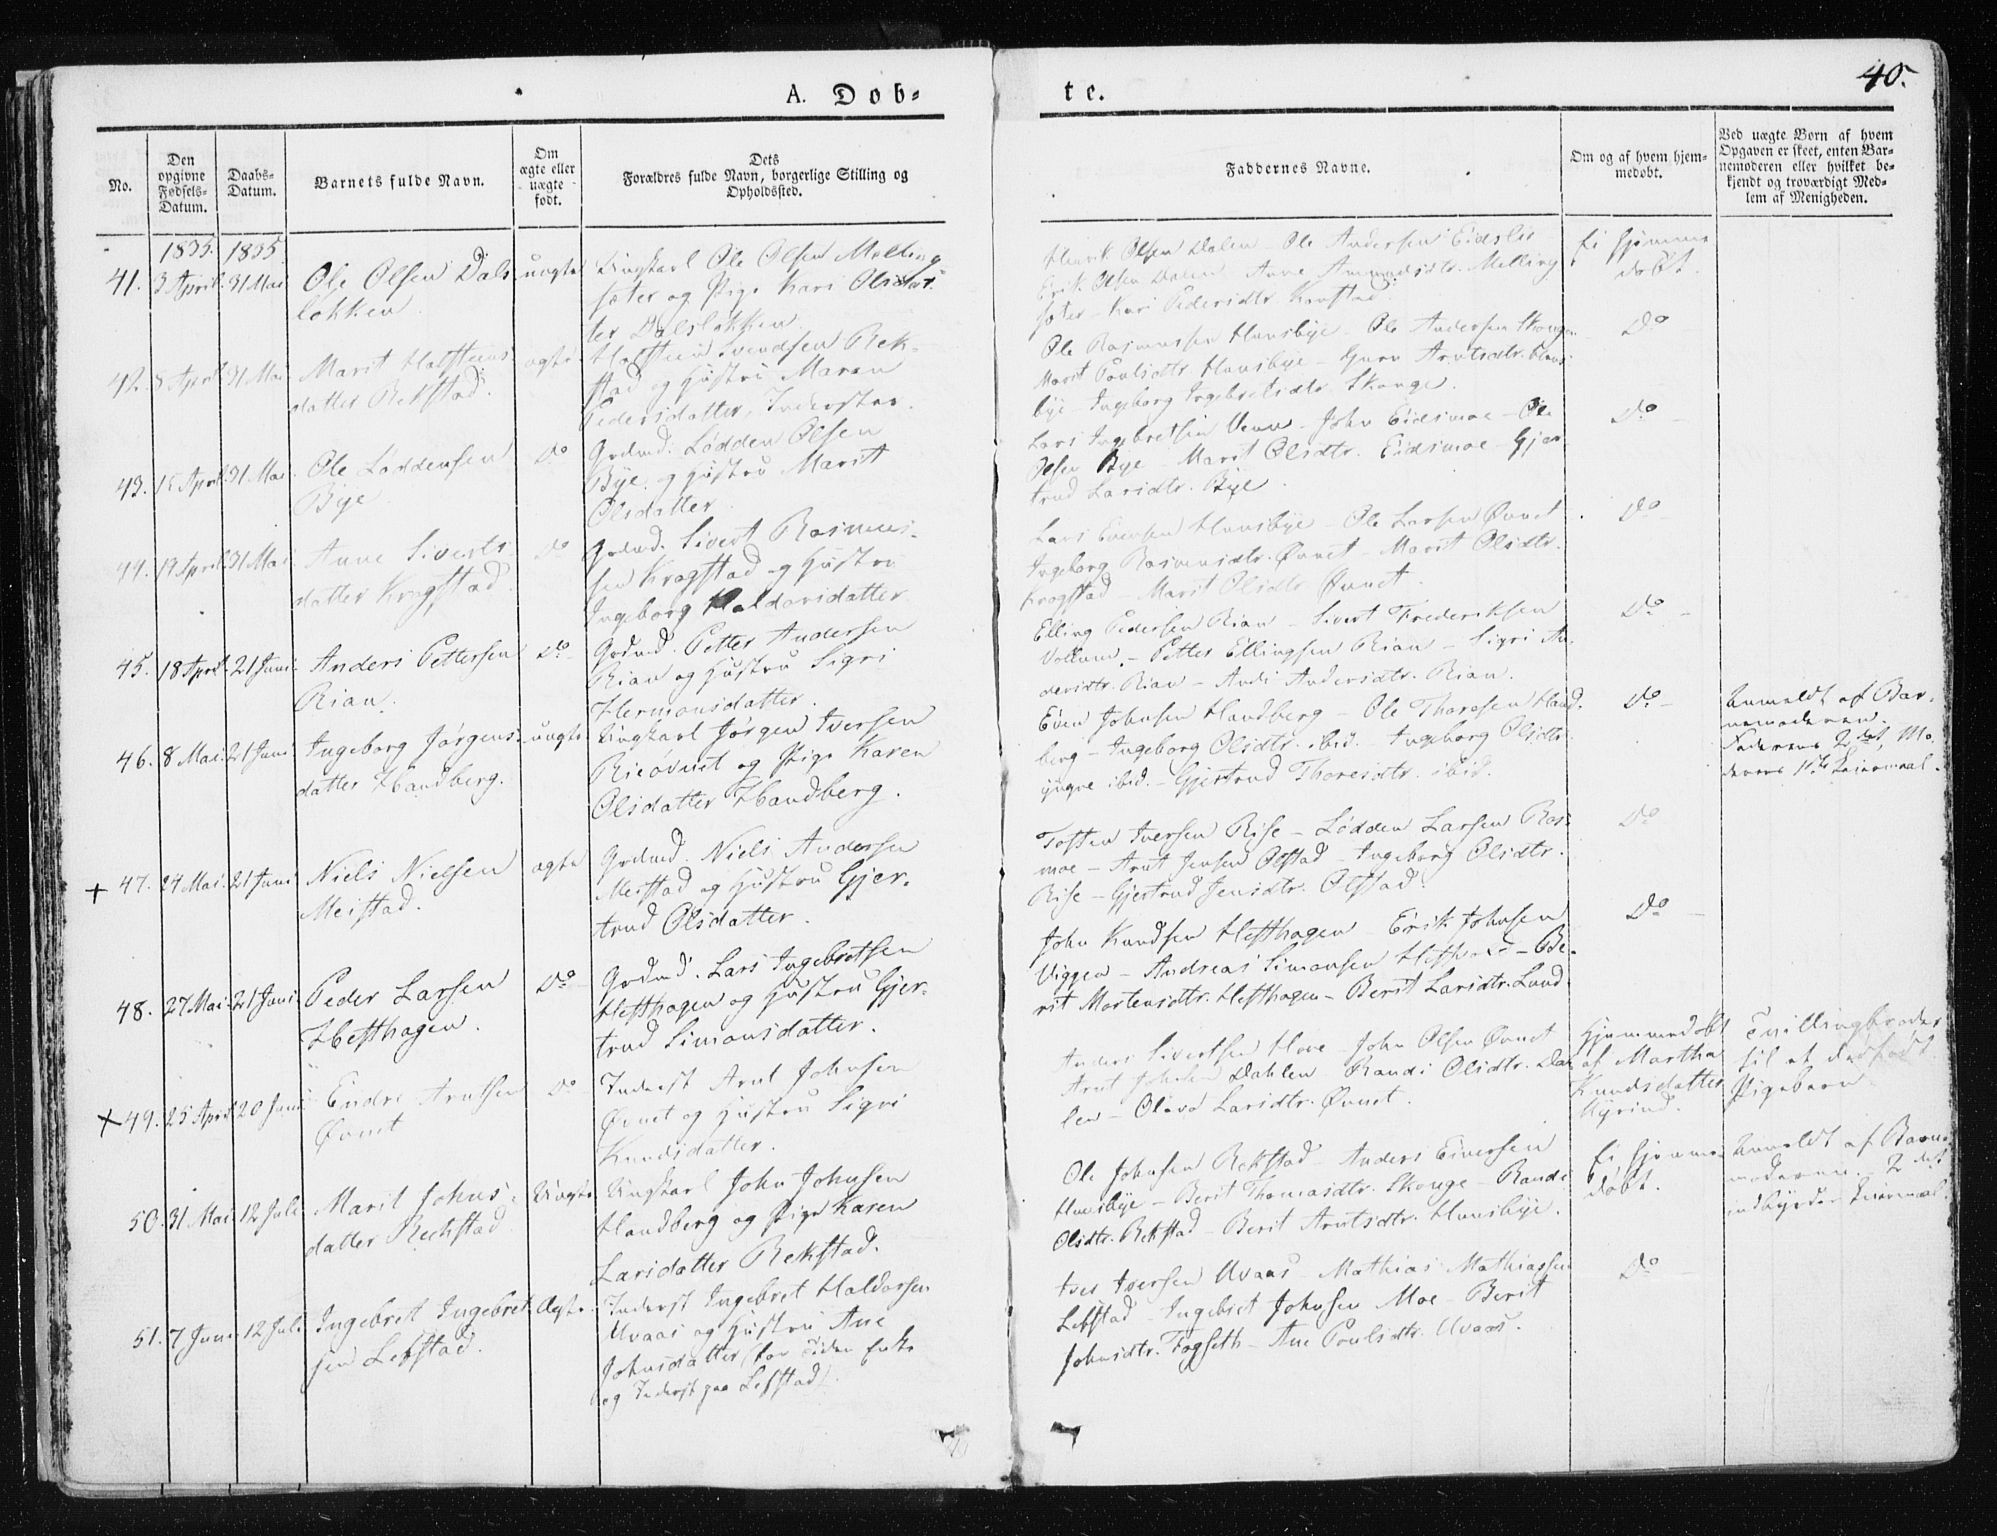 A. Døb-
te.
40.
No.
Den
opgivne
Fødsels-
Datum.
Daabs-
Datum.
Barnets fulde Navn.
Om
ægte eller
uægte
født.
Dets
Forældres fulde Navn, borgerlige Stilling og
Opholdssted.
Faddernes Navne.
Om og af hvem hjem-
medøbt.
Ved uægte Børn af hvem
Opgaven er skeet, enten Bar-
nemoderen eller hvilket be-
kjendt og troværdigt Med-
lem af Menigheden.
1835. 1835.
41. 3 April. 31 Mai
Ole Olsen Dals
løkken
uægte
Ungkarl Ole Olsen Melling
sæter og Pige Kari Olsdat
ter Dalsløkken
Henrik Olsen Dalen - Ole Andersen Eidslie
Erik Olsen Dalen Anne Amundsdtr. Melling
sæter - Kari Pedersdtr.
Ei hjemme
døbt.
42. 8 April 31 Mai
Marit Halsteins
datter Rekstad.
ægte
Halstein Svendsen Rek-
stad og Hustru Maren
Pedersdatter, Inderster.
Ole Rasmussen Hunsbye - Ole Andersen Skougen
Marit Poulsdtr. Hunsbye - Guru Arntsdtr. Huns-
bye - Ingeborg Ingebretsdtr. Skouge.
Do
43. 15 April. 31 Mai.
Ole Løddensen
Bye
Do
Grdmd. Lødden Olsen
Bye og Hustru Marit
Olsdatter
Lars Ingebretsen Venn - John Eidsmoe - Ole
Olsen Bye - Marit Olsdtr. Eidsmoe - Gjer-
trud Larsdtr. Bye.
Do
44. 19 April. 31 Mai
Anne Siverts
datter Kregstad
Do
Grdmd. Sivert Rasmus-
sen Kragstad og Hustru
Ingeborg Haldorsdatter
Lars Evensen Hunsbye - Ole Larsen Øvnet
Ingeborg Rasmusdtr. Øvnet - Marit Olsdtr.
Kragstad - Marit Olsdtr. Øvnet.
Do
45. 18 April. 21 Juni
Anders Pettersen
Rian.
Do
Grdmd. Petter Andersen
Rian og Hustru Sigri
Hermansdatter.
Elling Pedersen Rian - Sivert Frederiksen
Vollum. - Petter Ellingsen Rian - Sigri An-
dersdtr. Rian - Andi Andersdtr. Rian.
Do
46. 8 Mai. 21 Juni
Ingeborg Jørgens-
datter Handberg.
uægte
Ungkarl Jørgen Iversen
Rieøvnet og Pige Karen
Olsdatter Handberg.
Even Johnsen Handberg - Ole Thoresen Hand-
berg - Ingeborg Olsdtr. ibid. - Ingeborg Olsdtr.
yngre ibid. - Gjertrud Thoresdtr. ibid.
Do
Anmeldt af Bar-
nemoderen.
Faderens 2det, Mo-
derens 1ste Leiermaal.
+ 47. 24 Mai. 21 Juni
Niels Nielsen
Meistad.
ægte
Grdmd. Niels Andersen
Meistad og Hustru Gjer-
trud Olsdatter.
Tosten Iversen Rise - Lødden Larsen Ros-
moe - Arnt Jensen Olstad - Ingeborg Olsdtr.
Rise - Gjertrud Jensdtr. Olstad.
Do
48. 27 Mai. 21 Juni.
Peder Larsen
Hesthagen.
Do
Grdmd. Lars Ingebretsen
Hesthagen og Hustru Gjer-
trud Simonsdatter.
John Knudsen Hesthagen - Erik Johnsen
Viggen - Andreas Simonsen - Be-
rit Mortensdtr. Hesthagen - Berit Larsdtr. Lund.
Do
+ 49. 25 April 20 Juni
Endre Arntsen
Øvnet
Do
Inderst Arnt Johnsen
Øvnet og Hustru Sigri
Knudsdatter.
Anders Sivertsen Hove - John Olsen Øvnet
Arnt Johnsen Dahlen - Randi Olsdtr. Dah-
len - Olava Larsdtr. Øvnet.
Hjemmedøbt
af Martha
Knudsdatter
Tvillingbroder
til et dødfødt
Pigebarn
50. 31 Mai. 12 Juli
Marit Johns-
datter Reckstad
Uægte
Ungkarl John Johnsen
Handberg og Pige Karen
Larsdatter Rekstad.
Ole Johnsen Rekstad - Anders Einersen
Hunsbye - Berit Thomasdtr. Skouge - Randi
Olsdtr. Rekstad - Berit Arntsdtr. Hunsbye.
Ei hjemme-
døbt.
Anmeldt af Barne-
moderen. 2det
indbyrdes Leiermaal.
51. 7 Juni 12 Juli
Ingebret Ingebret-
sen Lefstad.
Ægte
Inderst Ingebret Haldorsen
Uvaas og Hustru Ane
Johnsdatter (for Tiden
og Inderst paa Lefstad).
Iver Iversen Uvaas - Mathias Mathiassen
Lefstad - Ingebret Johnsen Moe - Berit
Johnsdtr. Fogseth - Ane Poulsdtr. Uvaas.
Do